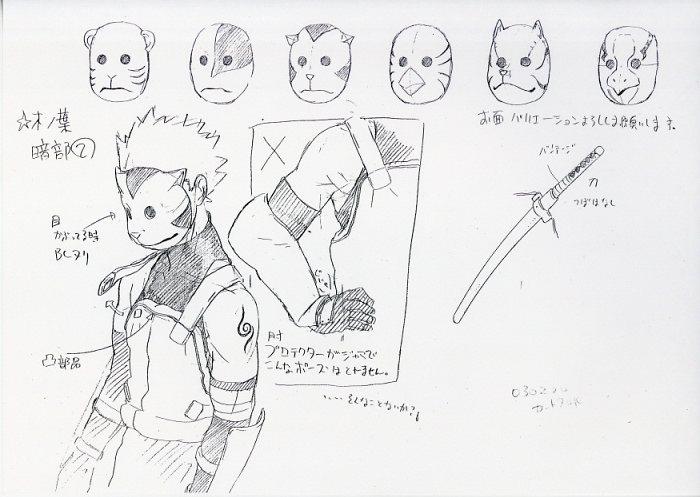 お面 バリエーションよろしくお願いします。
☆木ノ葉
暗部②
バンテージ
刀
つばはなし
目
かぶってる時
BLヌリ
凸部品
肘
プロテクターがジャマで
こんなポーズはとれません。
‥‥そんなことないか?!